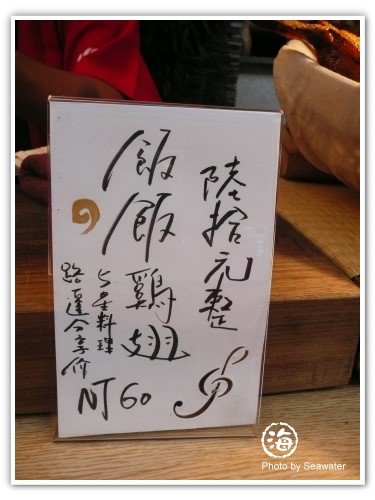 陸拾元整
飯飯雞翅
5星料理
路邊分享價
NT60
海
Photo by Seawater